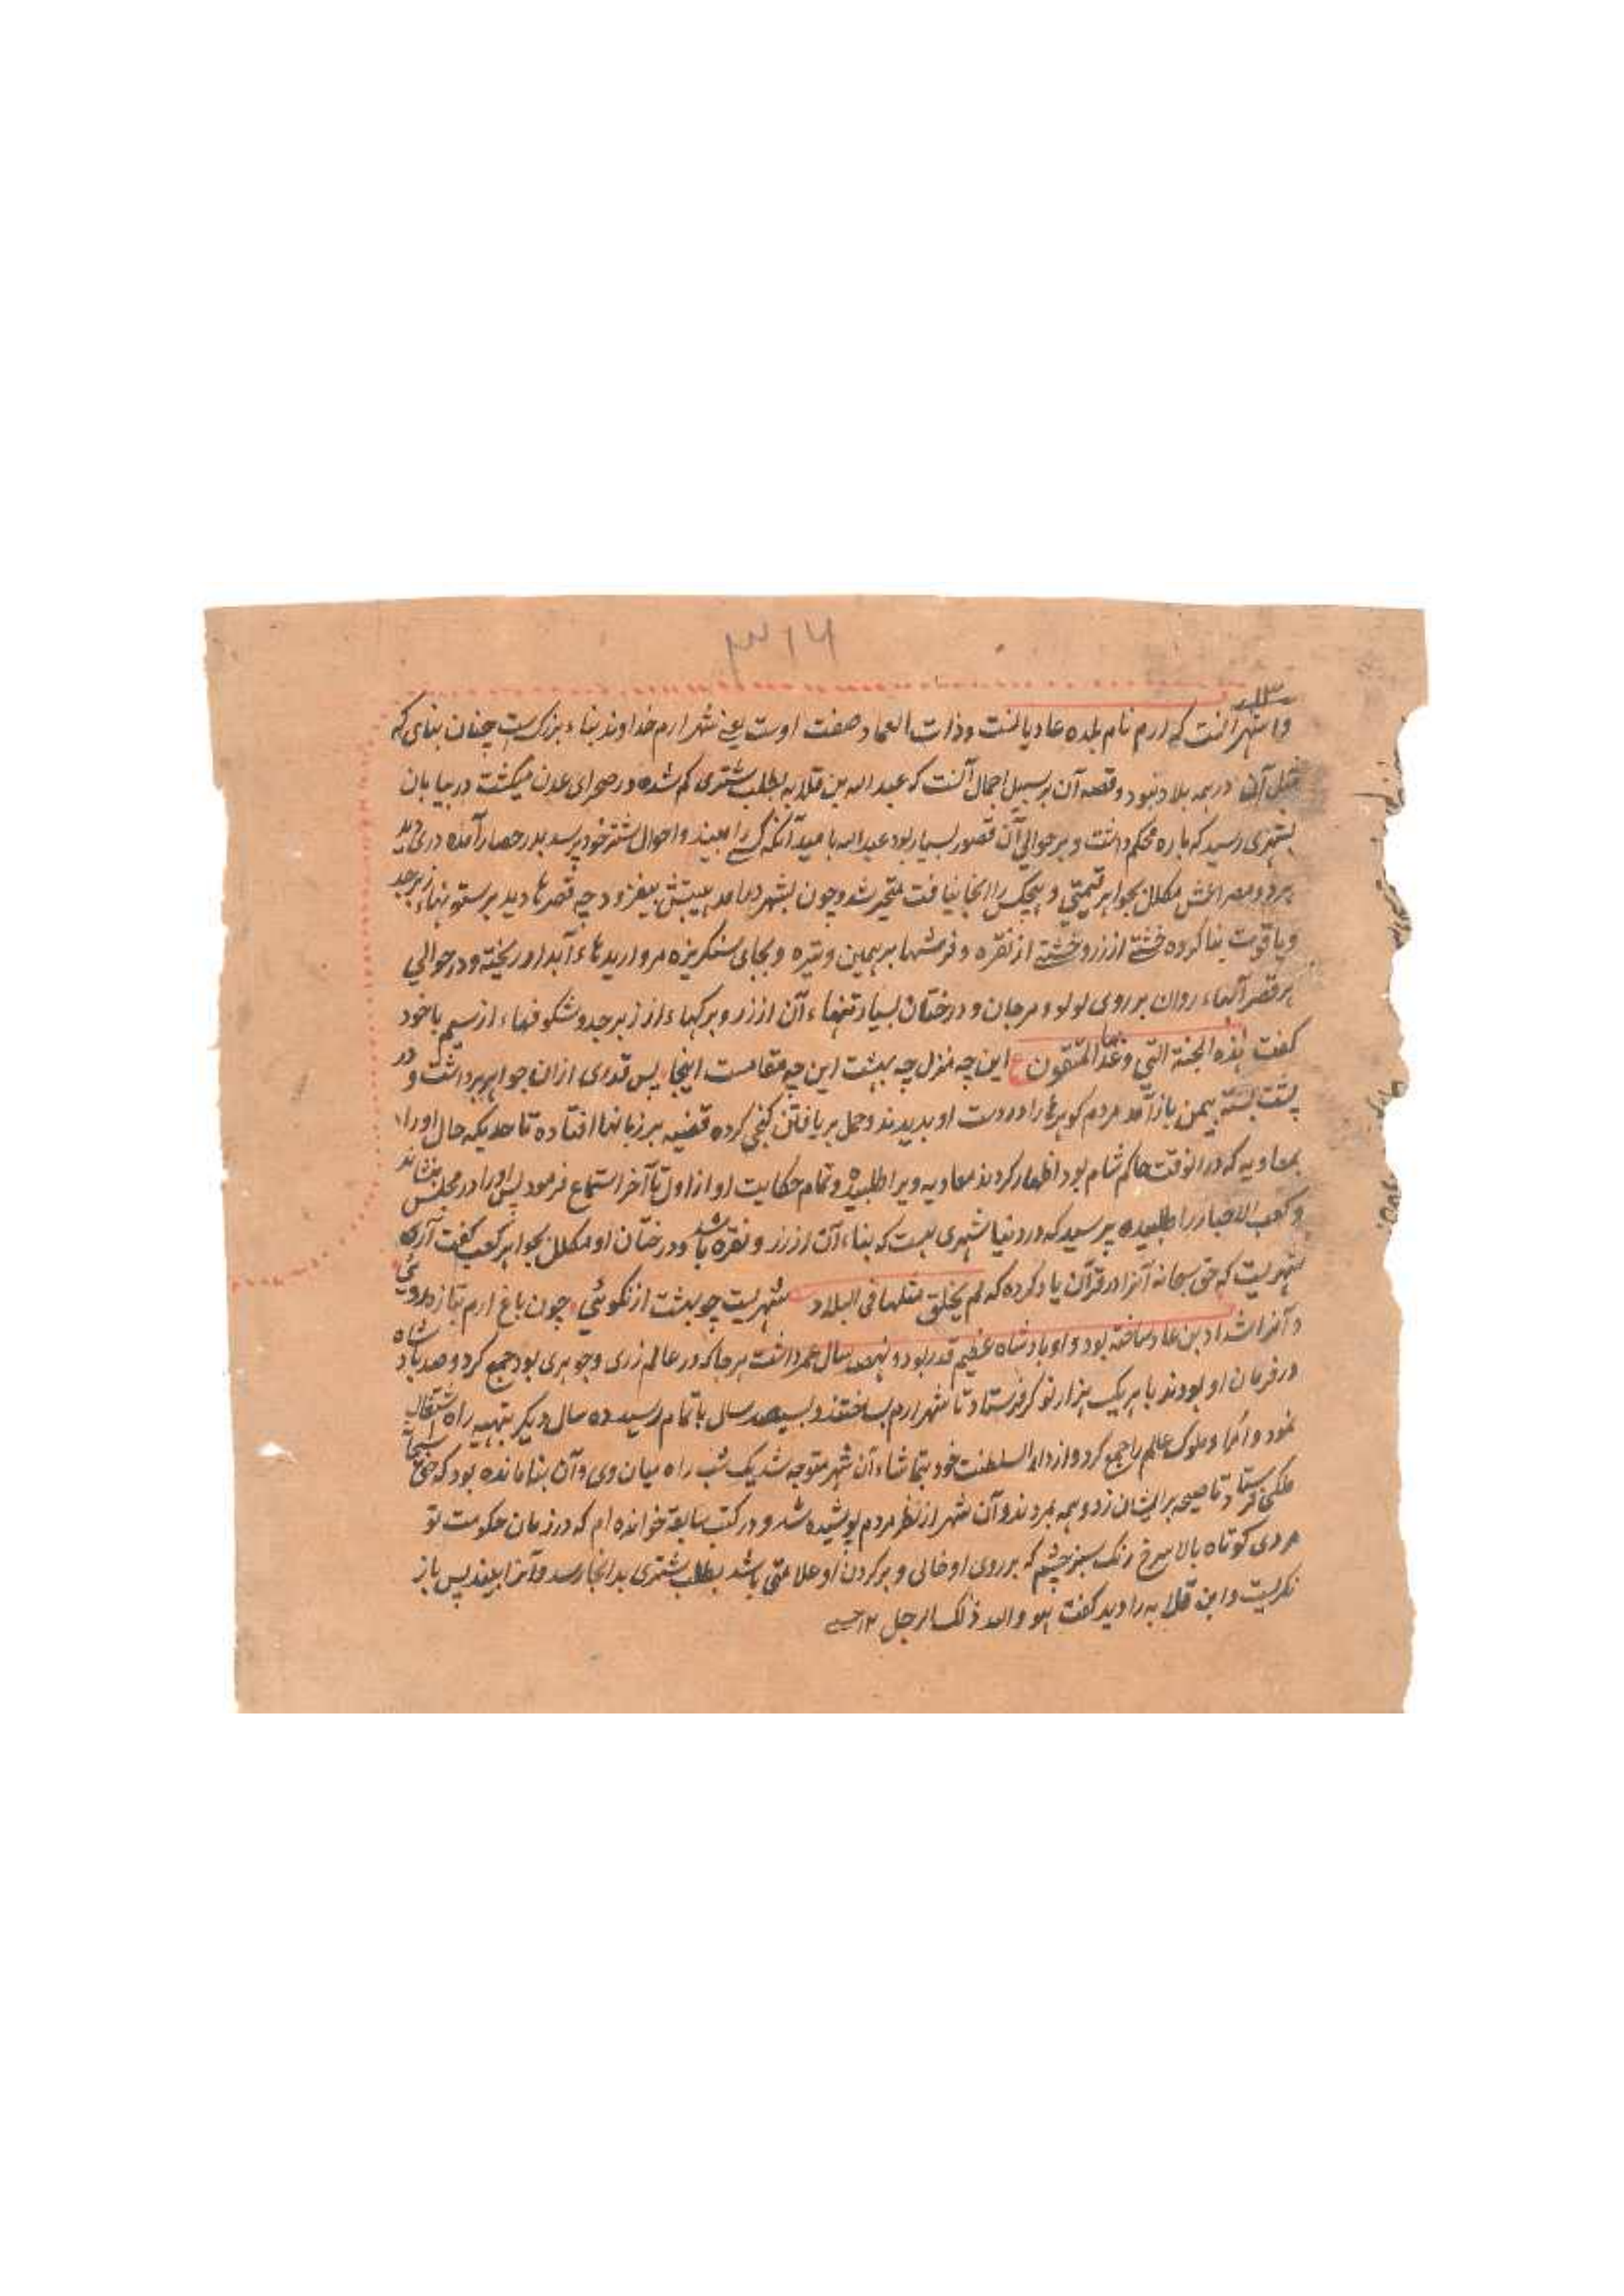 ۳۱۶
واشهر آنست که ارم نام بلده عادیانست وذات العماد صفت اوست یعنے شهر ارم خداوند بناء بزرکست چنان بنای که
مثل آن در همه بلاد نبود و قصه آن بر سبیل اجمال آنست که عبد الله بن قلابه بطلب شتری کم شده در صحرای عدن میکشت در بیابان
بشهری رسید که باره محکم داشت و بر حوالی آن قصور بسیار بود عبد الله بامید آنکه کسے را ببیند و احوال شتر خود پرسد بدر حصار آمده دری دید
هر دو مصراعش مکلل بجواهر قیمتی و هیچکس را انجا نیافت متحیر شد و چون بشهر درامد هیبتش بیفزود چه قصرها دید بر ستونهاء زبرجد
و یاقوت بنا کرده خشتے از زر و خشتے از نقره و فرشها بر همین وتیره و بجای سنکریزه مرواریدهاء آبدار ریخته و در حوالی
هر قصر آبهاء روان بر روی لولو و مرجان و درختان بسیار تنهاء آن از زر و برکهاء از زبرجد و شکوفهاء از سیم با خود
کفت هذه الجنة التی وعد المتقون ع این چه منزل چه بهشت این چه مقامست اینجا پس قدری ازان جواهر برداشت و در
پشت بسته بیمن بازآمد مردم کوهرها را در دست او بدیدند و حمل بر یافتن کنجی کرده قضیه بر زبانها افتاده تا حدیکه حال او را
بمعاویه که درانوقت حاکم شام بود اظهار کردند معاویه ویرا طلبیده و تمام حکایت او از اول تا آخر استماع فرمود پس او را در مجلس بنشاند
و کعب الاحبار را طلبیده پرسید که در دنیا شهری هست که بناء آن از زر و نقره باشد و درختان او مکلل بجواهر کعب کفت آری
شهریست که حق سبحانه آنرا در قرآن یاد کرده که لم یخلق مثلها فی البلاد شهریست چو بهشت از نکوئی چون باغ ارم بتازه روئی
و آنرا شداد بن عاد ساخته بود و او پادشاه عظیم قدر بود و نهصد سال عمر داشت هر جا که در عالم زری و جوهری بود جمع کرد و صد پادشاه
در فرمان او بودند با هر یک هزار نوکر فرستاد تا شهر ارم بساختند و بسیصد سال باتمام رسید و ده سال دیکر بتهیه راه اشتغال
نمود و امرا و ملوک عالم را جمع کرد و از دار السلطنت خود بتماشاء آن شهر متوجه شد یک شب راه میان وی و آن بنا مانده بود که حق سبحانه
ملکی فرستاد تا صیحه بر ایشان زد و همه بمردند و آن شهر از نظر مردم پوشیده شد و در کتب سابقه خوانده ام که در زمان حکومت تو
مردی کوتاه بالا سرخ رنک سبز چشم که بر روی او خالی و بر کردن او علامتی باشد بطلب شتری بدانجا رسد و آنرا ببیند پس باز
نکریست و ابن قلابه را دید کفت هو والله ذلک الرجل ۱۲